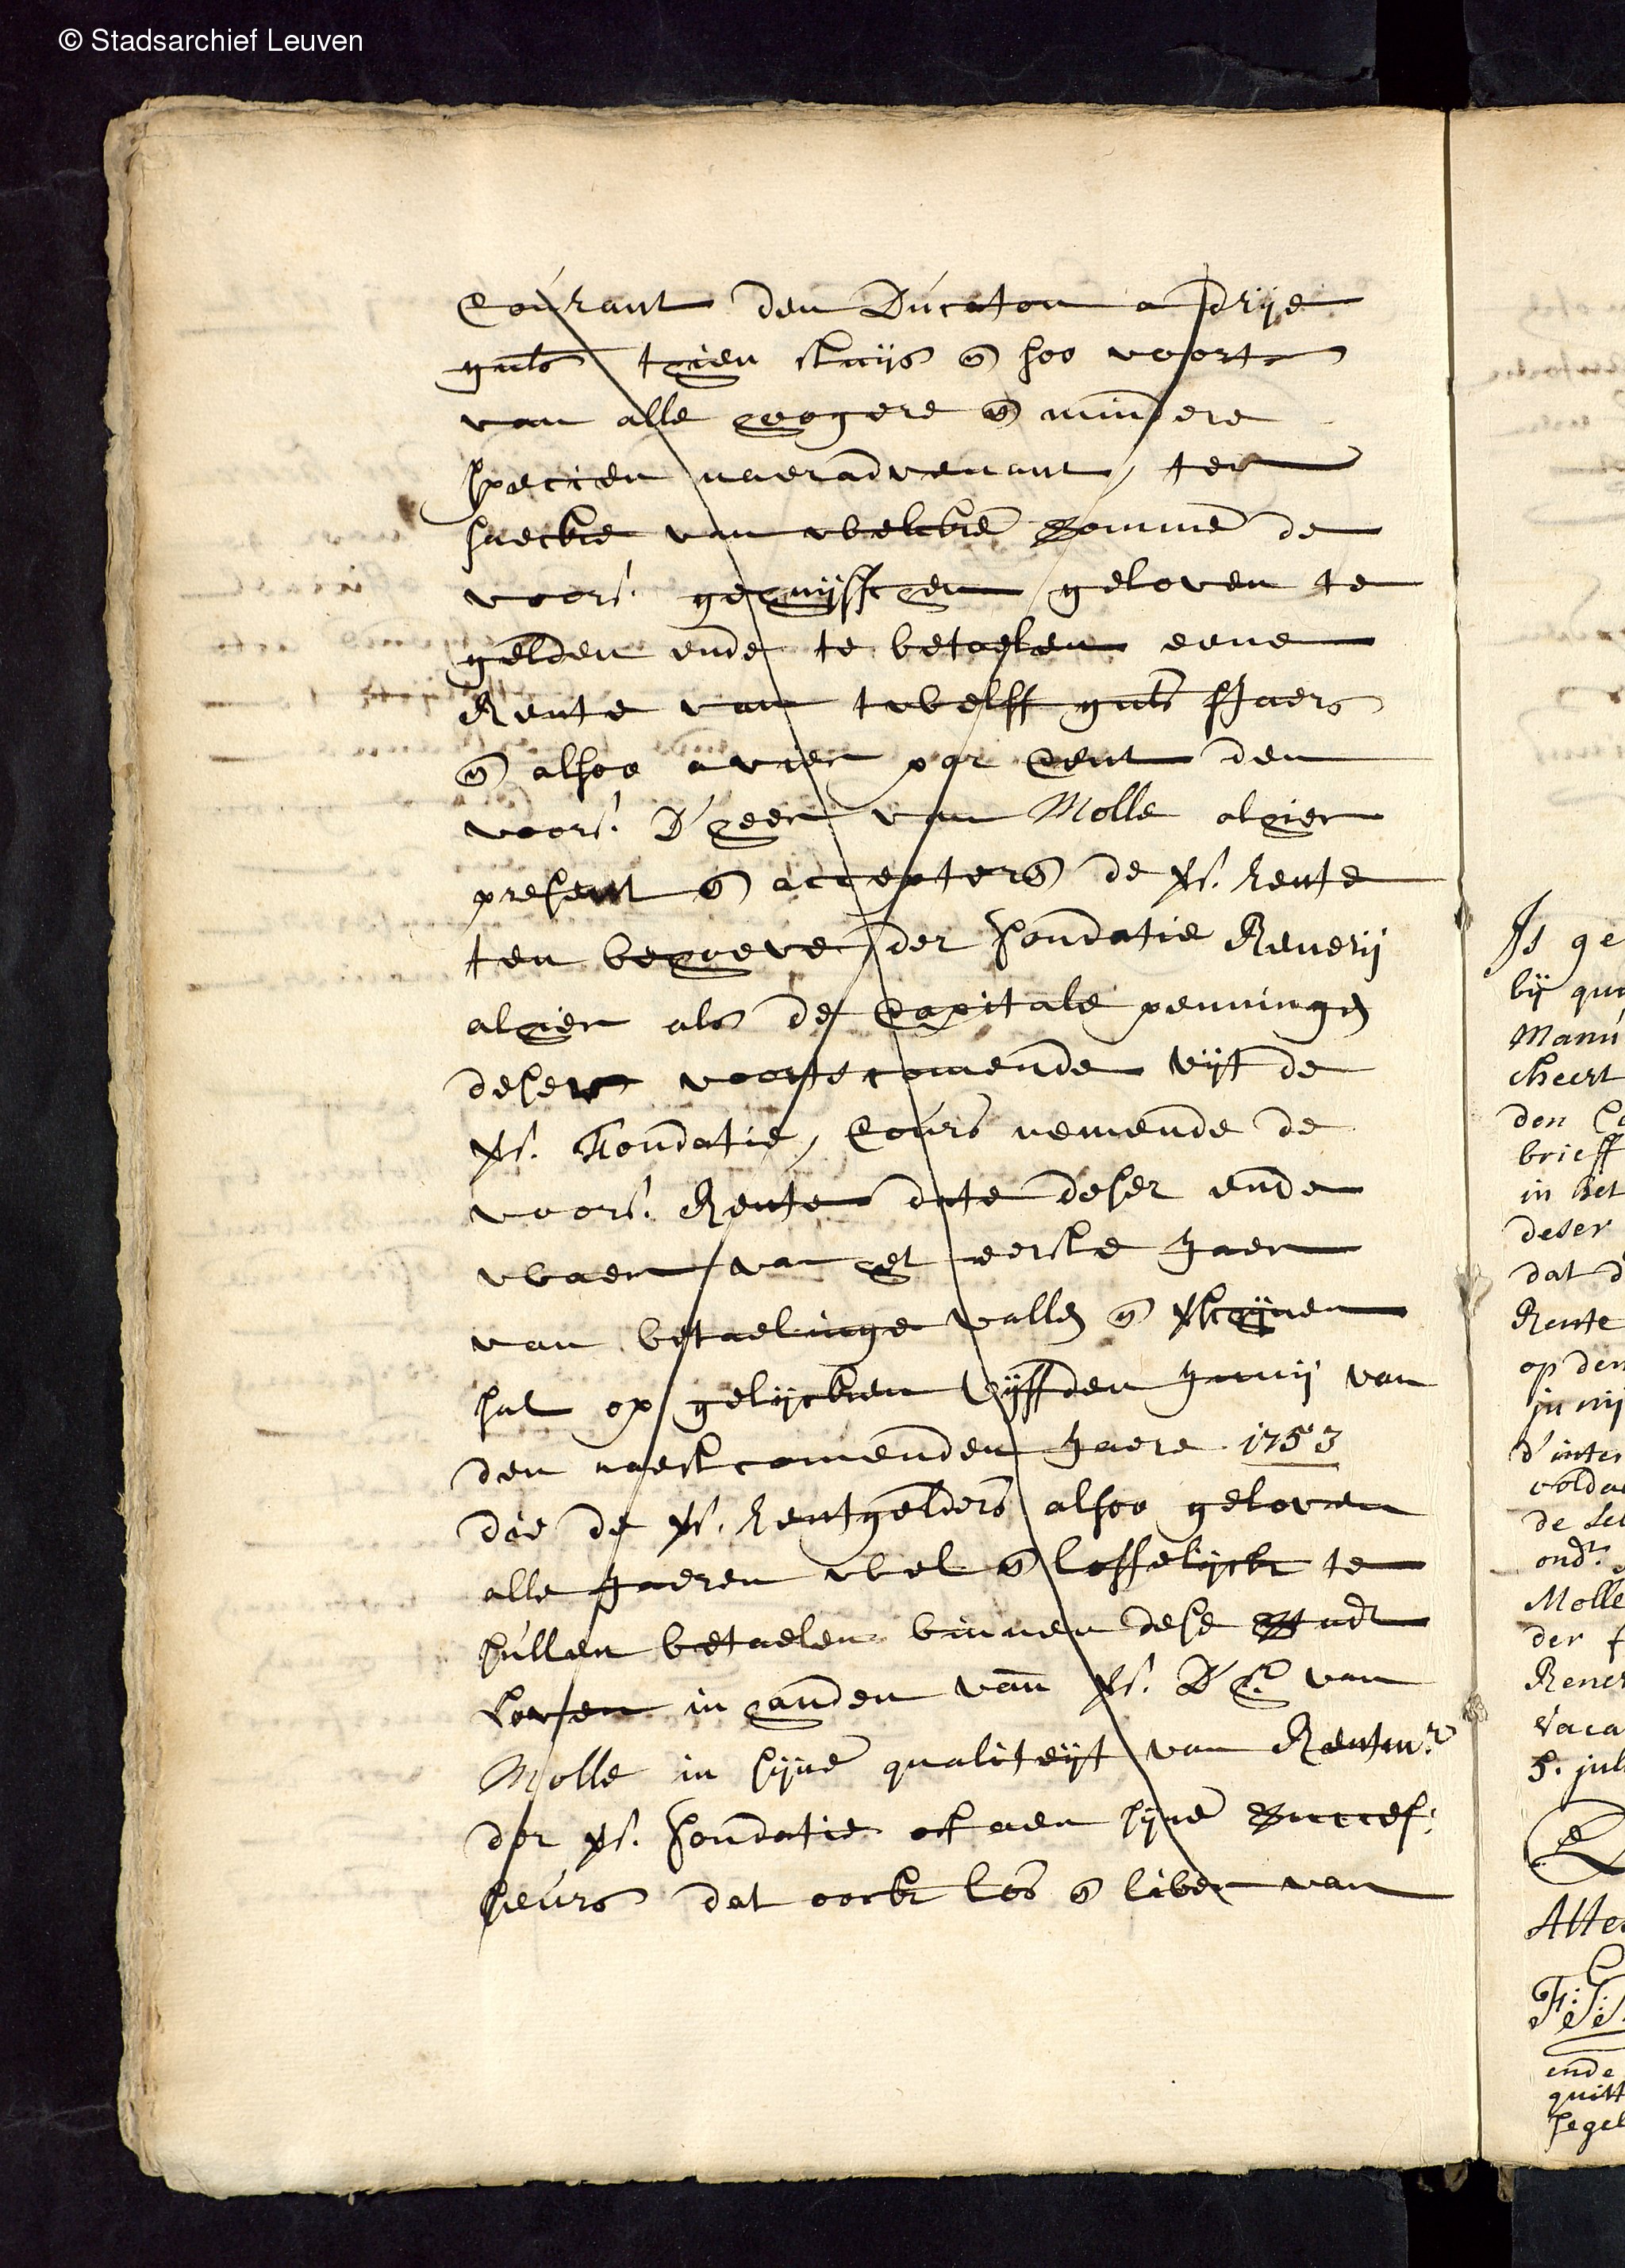 © Stadsarchief Leuven
Courant den Ducaton a drije
guls thien stuijs en soo voorts
van alle hoogere en mindere
specien naeradvenant, ter
saecke van welcke somme de
voors. gehuijsschen geloven te
gelden ende te betaelen eene
Rente van twelff guls sjaers
en alsoo a vier par cent den
voors. D'heer van Molle alhier
present en accepteren de vs. rente
ten behoeve der fondatie Renerij
alhier als de capitale penningen
deser voortscomende uijt de
vs. Fondatie, Cours nemende de
voors. Rente date deser ende
waer van het eerste jaer
van betaelinge vallen en vschijnen
sal op gelijcken vijffden junij van
den naestcomenden jaere 1753
die de vs. rentgelders alsoo geloven
alle jaeren wel en loffelijck te
sullen betaelen binnen dese stadt
Loven in handen van vs. Dhr van
Molle in sijne qualiteijt van Rentmr
der vs. fondatie oft aen sijne succes:
seurs dat oock los en liber van
Is ge
bij qu
Manu
cheert
den
brieff
in het
deser
dat d
Rente
op den
junij
d'inter
volda
de
ondt.
Molle
der f
Rener
Vaca
5. jul
Atte
ende
quitt
segel